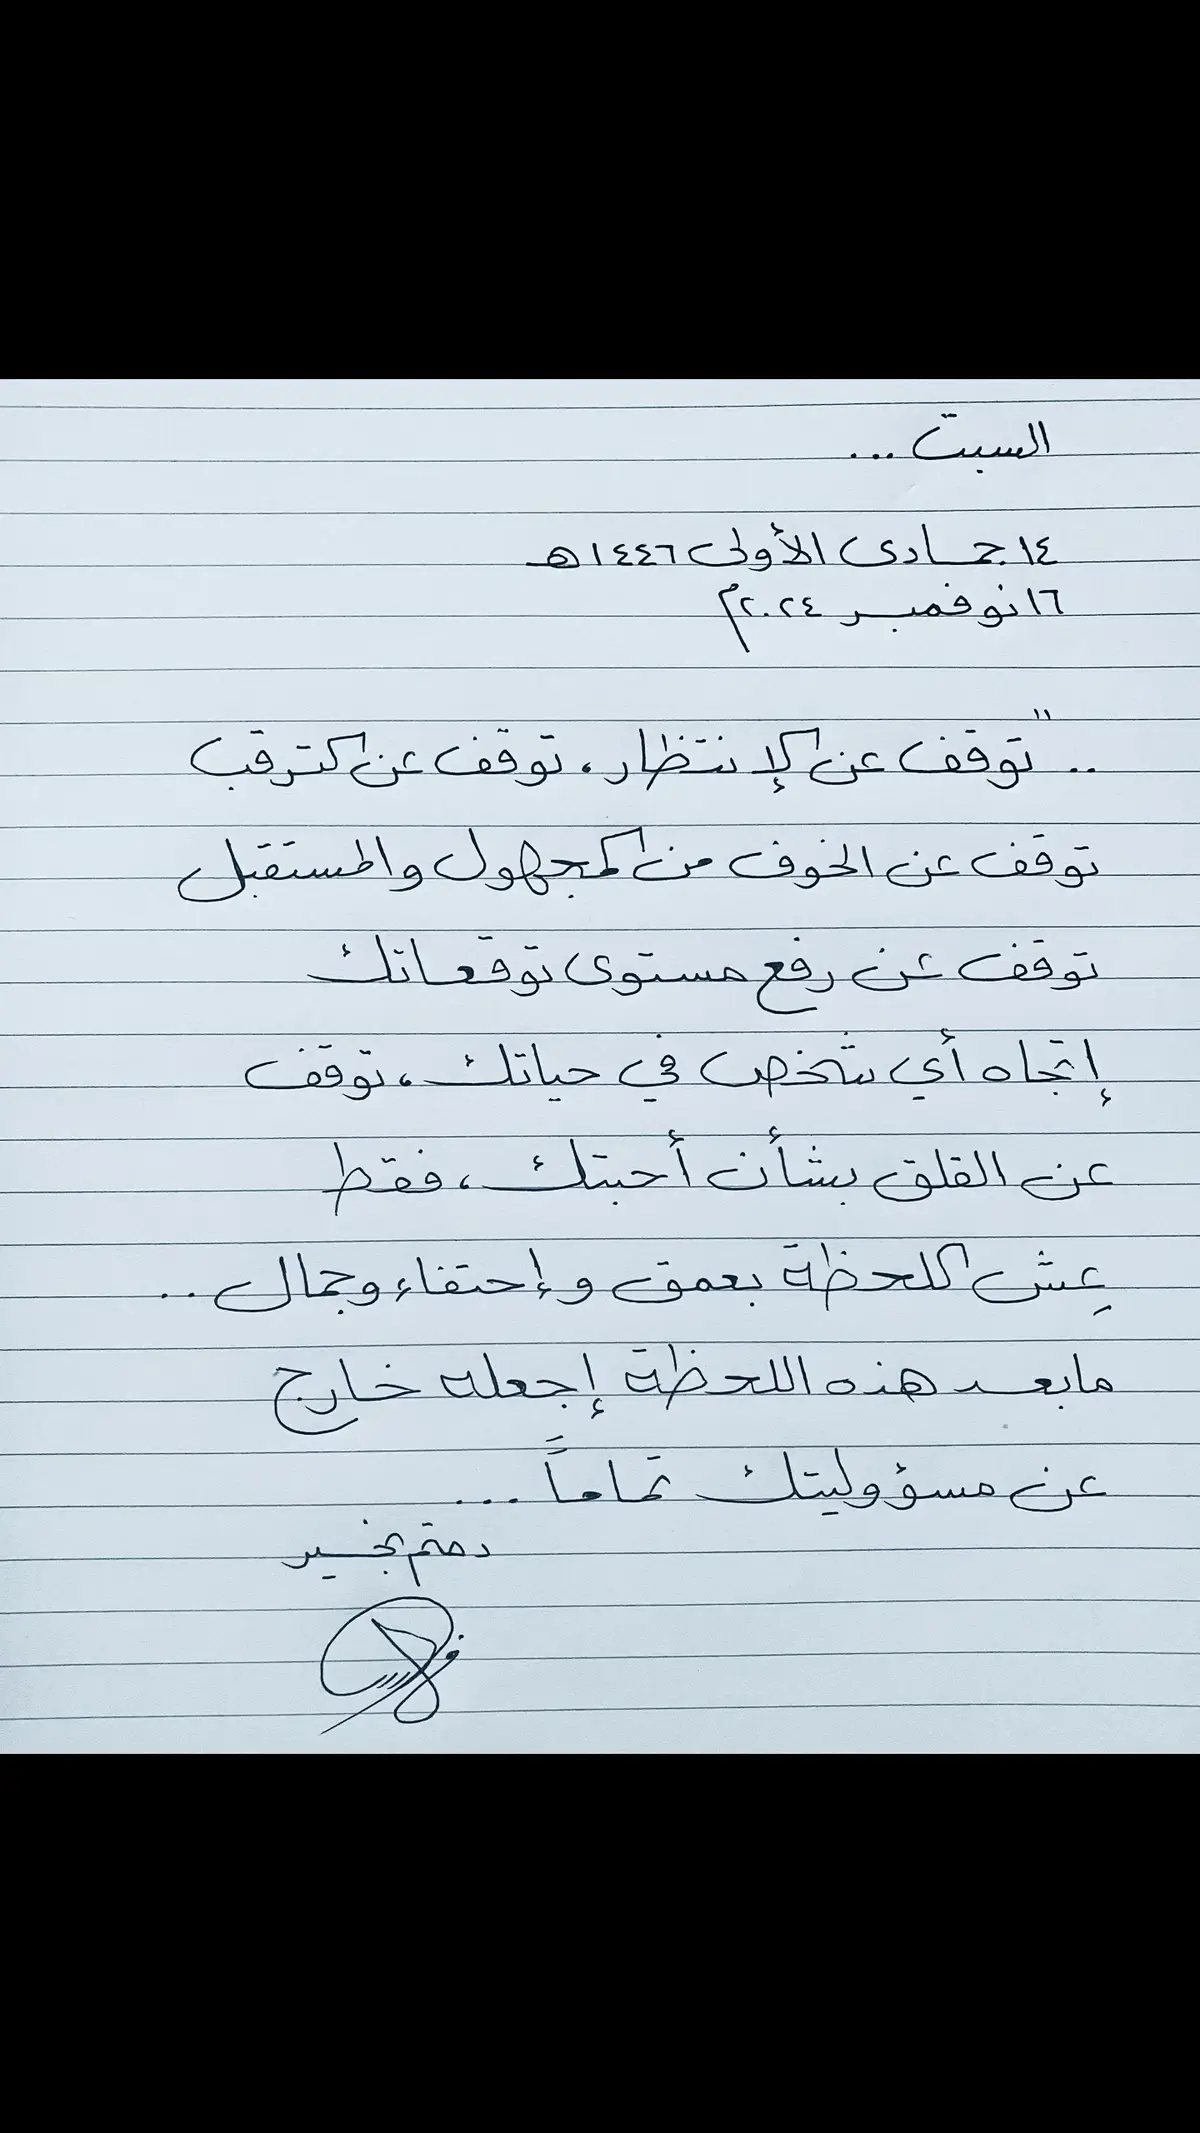 السبت ...
١٤ جمادى الأولى ١٤٤٦هـ
١٦ نوفمبر ٢٠٢٤م
.. " توقف عن الإنتظار، توقف عن الترقب
توقف عن الخوف من المجهول والمستقبل
توقف عن رفع مستوى توقعاتك
إتجاه أي شخص في حياتك، توقف
عن القلق بشأن أحبتك، فقط
عِش اللحظة بعمق وإحتفاء وجمال ..
مابعد هذه اللحظة إجعله خارج
عن مسؤوليتك تماماً ...
دمتم بخير